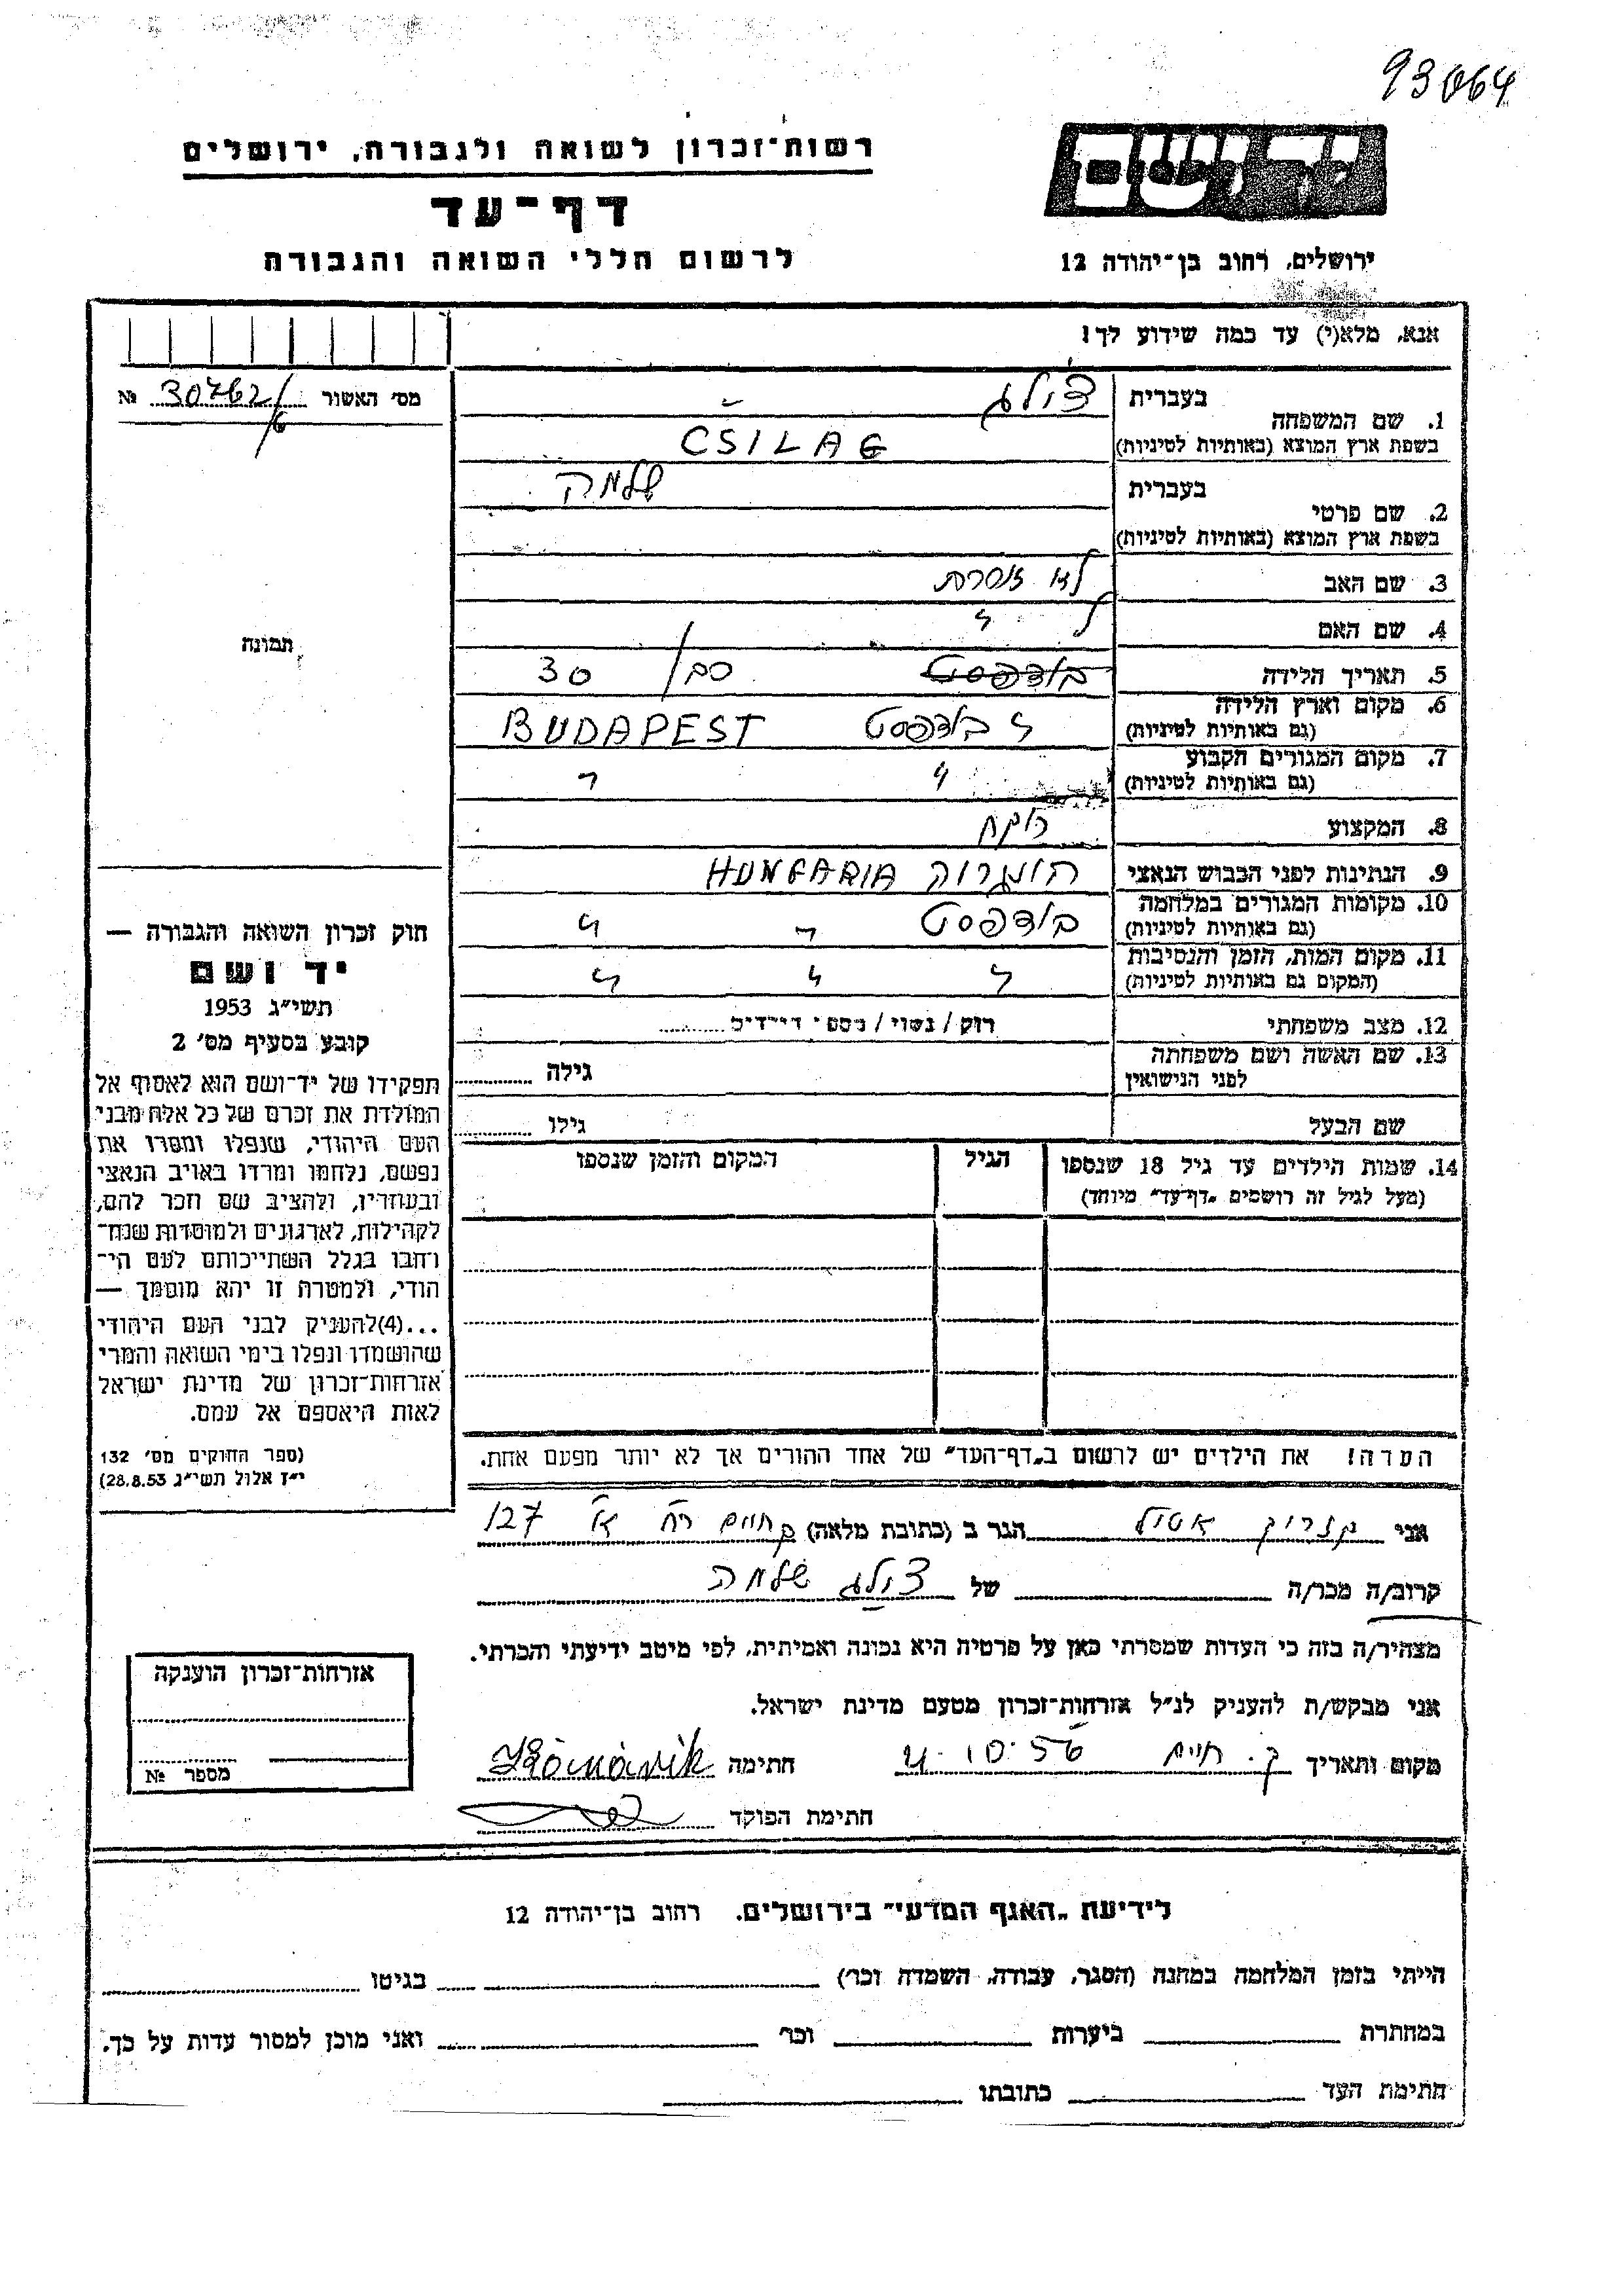 93064
רשות־זכרון לשואה ולגבורה, ירושלים
דף־עד
לרשום חללי השואה והגבורה
יד ושם
ירושלים, רחוב בן־יהודה 12
אנא, מלא(י) עד כמה שידוע לך!
מס׳ האשור 30762/6 №
1. שם המשפחה
בעברית
בשפת ארץ המוצא (באותיות לטיניות) CSILAG
2. שם פרטי
בעברית שלמה
בשפת ארץ המוצא (באותיות לטיניות)
3. שם האב לא
4. שם האם
5. תאריך הלידה בודפסט 30
6. מקום וארץ הלידה בודפסט BUDAPEST
(גם באותיות לטיניות)
7. מקום המגורים הקבוע
(גם באותיות לטיניות)
8. המקצוע רוקח
9. הנתינות לפני הכבוש הנאצי הונגריה HUNGARIA
10. מקומות המגורים במלחמה בודפסט
(גם באותיות לטיניות)
11. מקום המות, הזמן והנסיבות
(המקום גם באותיות לטיניות)
12. מצב משפחתי רוק / נשוי / מספר ילדים
13. שם האשה ושם משפחתה
לפני הנישואין
גילה
שם הבעל גילו
14. שמות הילדים עד גיל 18 שנספו
(מעל לגיל זה רושמים „דף־עד״ מיוחד)
הגיל
המקום והזמן שנספו
הערה! את הילדים יש לרשום ב„דף־העד״ של אחד ההורים אך לא יותר מפעם אחת.
תמונה
חוק זכרון השואה והגבורה —
יד ושם
תשי״ג 1953
קובע בסעיף מס׳ 2
תפקידו של יד־ושם הוא לאסוף אל
המולדת את זכרם של כל אלה מבני
העם היהודי, שנפלו ומסרו את
נפשם, נלחמו ומרדו באויב הנאצי
ובעוזריו, ולהציב שם וזכר להם,
לקהילות, לארגונים ולמוסדות שנח־
רחבו בגלל השתייכותם לעם הי־
הודי, ולמטרה זו יהא מוסמך —
...(4) להעניק לבני העם היהודי
שהושמדו ונפלו בימי השואה והמרי
אזרחות־זכרון של מדינת ישראל
לאות היאספם אל עמם.
(ספר החוקים מס׳ 132
י״ז אלול תשי״ג 28.8.53)
אני הגר ב (כתובת מלאה) 127
קרוב/ה מכר/ה של שלמה
מצהיר/ה בזה כי העדות שמסרתי כאן על פרטיה היא נכונה ואמיתית, לפי מיטב ידיעתי והכרתי.
אני מבקש/ת להעניק לנ״ל אזרחות־זכרון מטעם מדינת ישראל.
מקום ותאריך ק. חיים 10.56 חתימה
חתימת הפוקד
אזרחות־זכרון הוענקה
מספר №
לידיעת „האגף המדעי״ בירושלים. רחוב בן־יהודה 12
הייתי בזמן המלחמה במחנה (הסגר, עבודה, השמדה וכר׳) בגיטו
במחתרת ביערות וכר׳ ואני מוכן למסור עדות על כך.
חתימת העד כתובתו